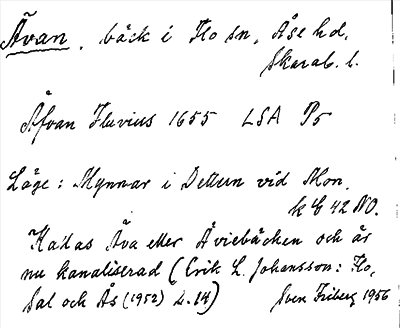 Åvan, bäck i Flo sn, Åse hd,
Skarab. l.
Åfvan Fluvius 1655 LSA P5
Läge: Mynnar i Dettern vid Mon,
k E 42 NO.
Kallas Åva eller Åviebäcken och är
nu kanaliserad (Erik L. Johansson: Flo,
Sal och Ås (1952) s. 14) Sven Friberg 1956